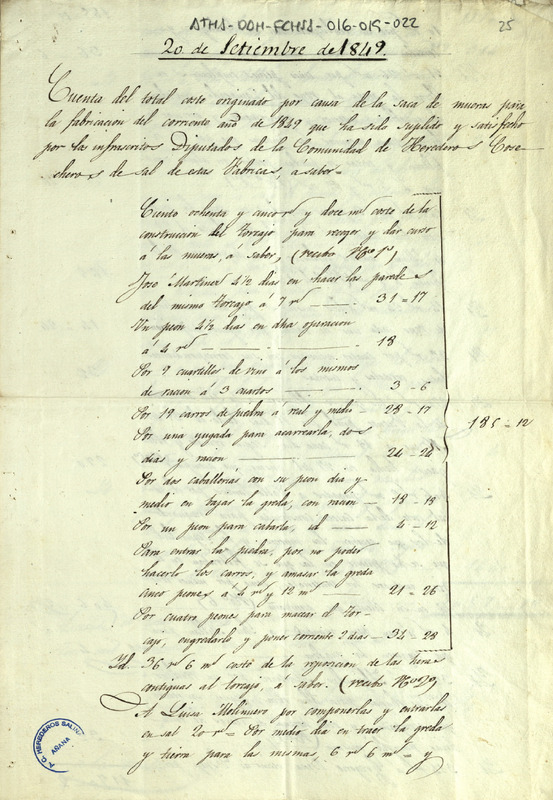 ATHA-DDH-FCHSA-016-019-022
25
20 de Setiembre de 1849.
Cuenta del total costo originado por causa de la saca de mueras para
la fabricacion del corriente año de 1849 que ha sido suplido y satisfecho
por los infrascritos Diputados de la Comunidad de Herederos Cose
cheros de sal de estas Fabricas, á saber=
Ciento ochenta y cinco rs y doce ms costo de la
construcion del torcajo para recoger y dar curso
á las mueras, a saber, (recibo Nro 1º)
José Martinez 4½ dias en hacer las paredes
del mismo torcajo á 7 rs — 31=17
Un peon 4½ dias en dha operacion
á 4 rs — 18
Por 9 cuartillos de vino á los mismos
de racion á 3 cuartos — 3-6
Por 19 carros de piedra á real y medio — 28-17
Por una yugada para acarrearla, dos
dias y racion — 24-24
Por dos caballerias con su peon dia y
medio en bajar la greda, con racion — 18-18
Por un peon para cabarla, id — 4-12
Para entrar la piedra, por no poder
hacerlo los carros, y amasar la greda
cinco peones á 4 rs y 12 ms — 21-26
Por cuatro peones para macear el tor-
cajo, engredarlo y poner corriente 2 dias — 34-28
185-12
Id. 36 rs 6 ms costo de la reposicion de las heras
contiguas al torcajo, á saber. (recibo Nro 2º)
A Luisa Molinuevo por componerlas y entrarlas
en sal 20 rs= Por medio dia en traer la greda
y tierra para las mismas, 6 rs 6 ms = y
HEREDEROS
AÑANA